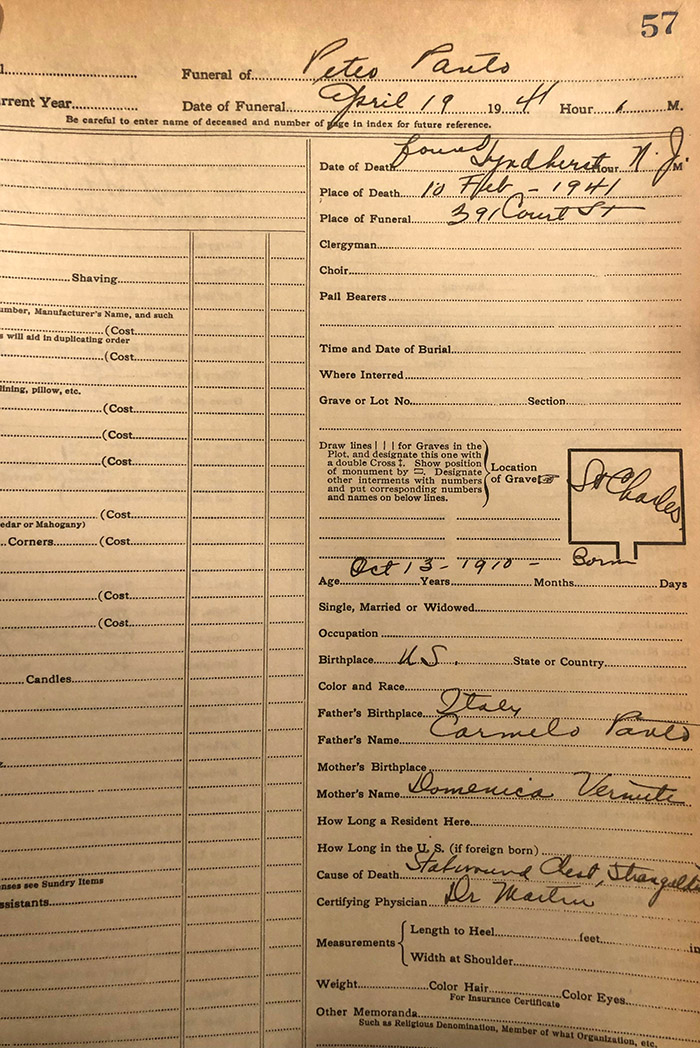 57
Funeral of Peteo Panto
rrent Year
Date of Funeral April 19 1941 Hour M.
Be careful to enter name of deceased and number of page in index for future reference.
Date of Death found Lyndherst Hour N.J. M
Place of Death 10 Feb - 1941
Place of Funeral 391 Court St
Clergyman
Choir
Shaving
Pall Bearers
umber, Manufacturer's Name, and such
(Cost
s will aid in duplicating order
Time and Date of Burial
(Cost
Where Interred
ining, pillow, etc.
Grave or Lot No. Section
(Cost
(Cost
Draw lines | | | for Graves in the
Plot, and designate this one with
a double Cross ‡. Show position
of monument by
Designate
other interments with numbers
and put corresponding numbers
and names on below lines.
Location
of Grave
St Charles
(Cost
(Cost
edar or Mahogany)
Corners (Cost
Oct 13 - 1910 - Born
Age Years Months Days
(Cost
Single, Married or Widowed
(Cost
Occupation
Birthplace U.S. State or Country
Candles
Color and Race
Father's Birthplace Italy
Father's Name Carmelo Panto
Mother's Birthplace
Mother's Name Domenica
How Long a Resident Here
How Long in the U. S. (if foreign born)
nses see Sundry Items
Cause of Death Stabwound Chest,
ssistants
Certifying Physician Dr Martin
Measurements
Length to Heel feet in
Width at Shoulder
Weight Color Hair Color Eyes
For Insurance Certificate
Other Memoranda
Such as Religious Denomination, Member of what Organization, etc.